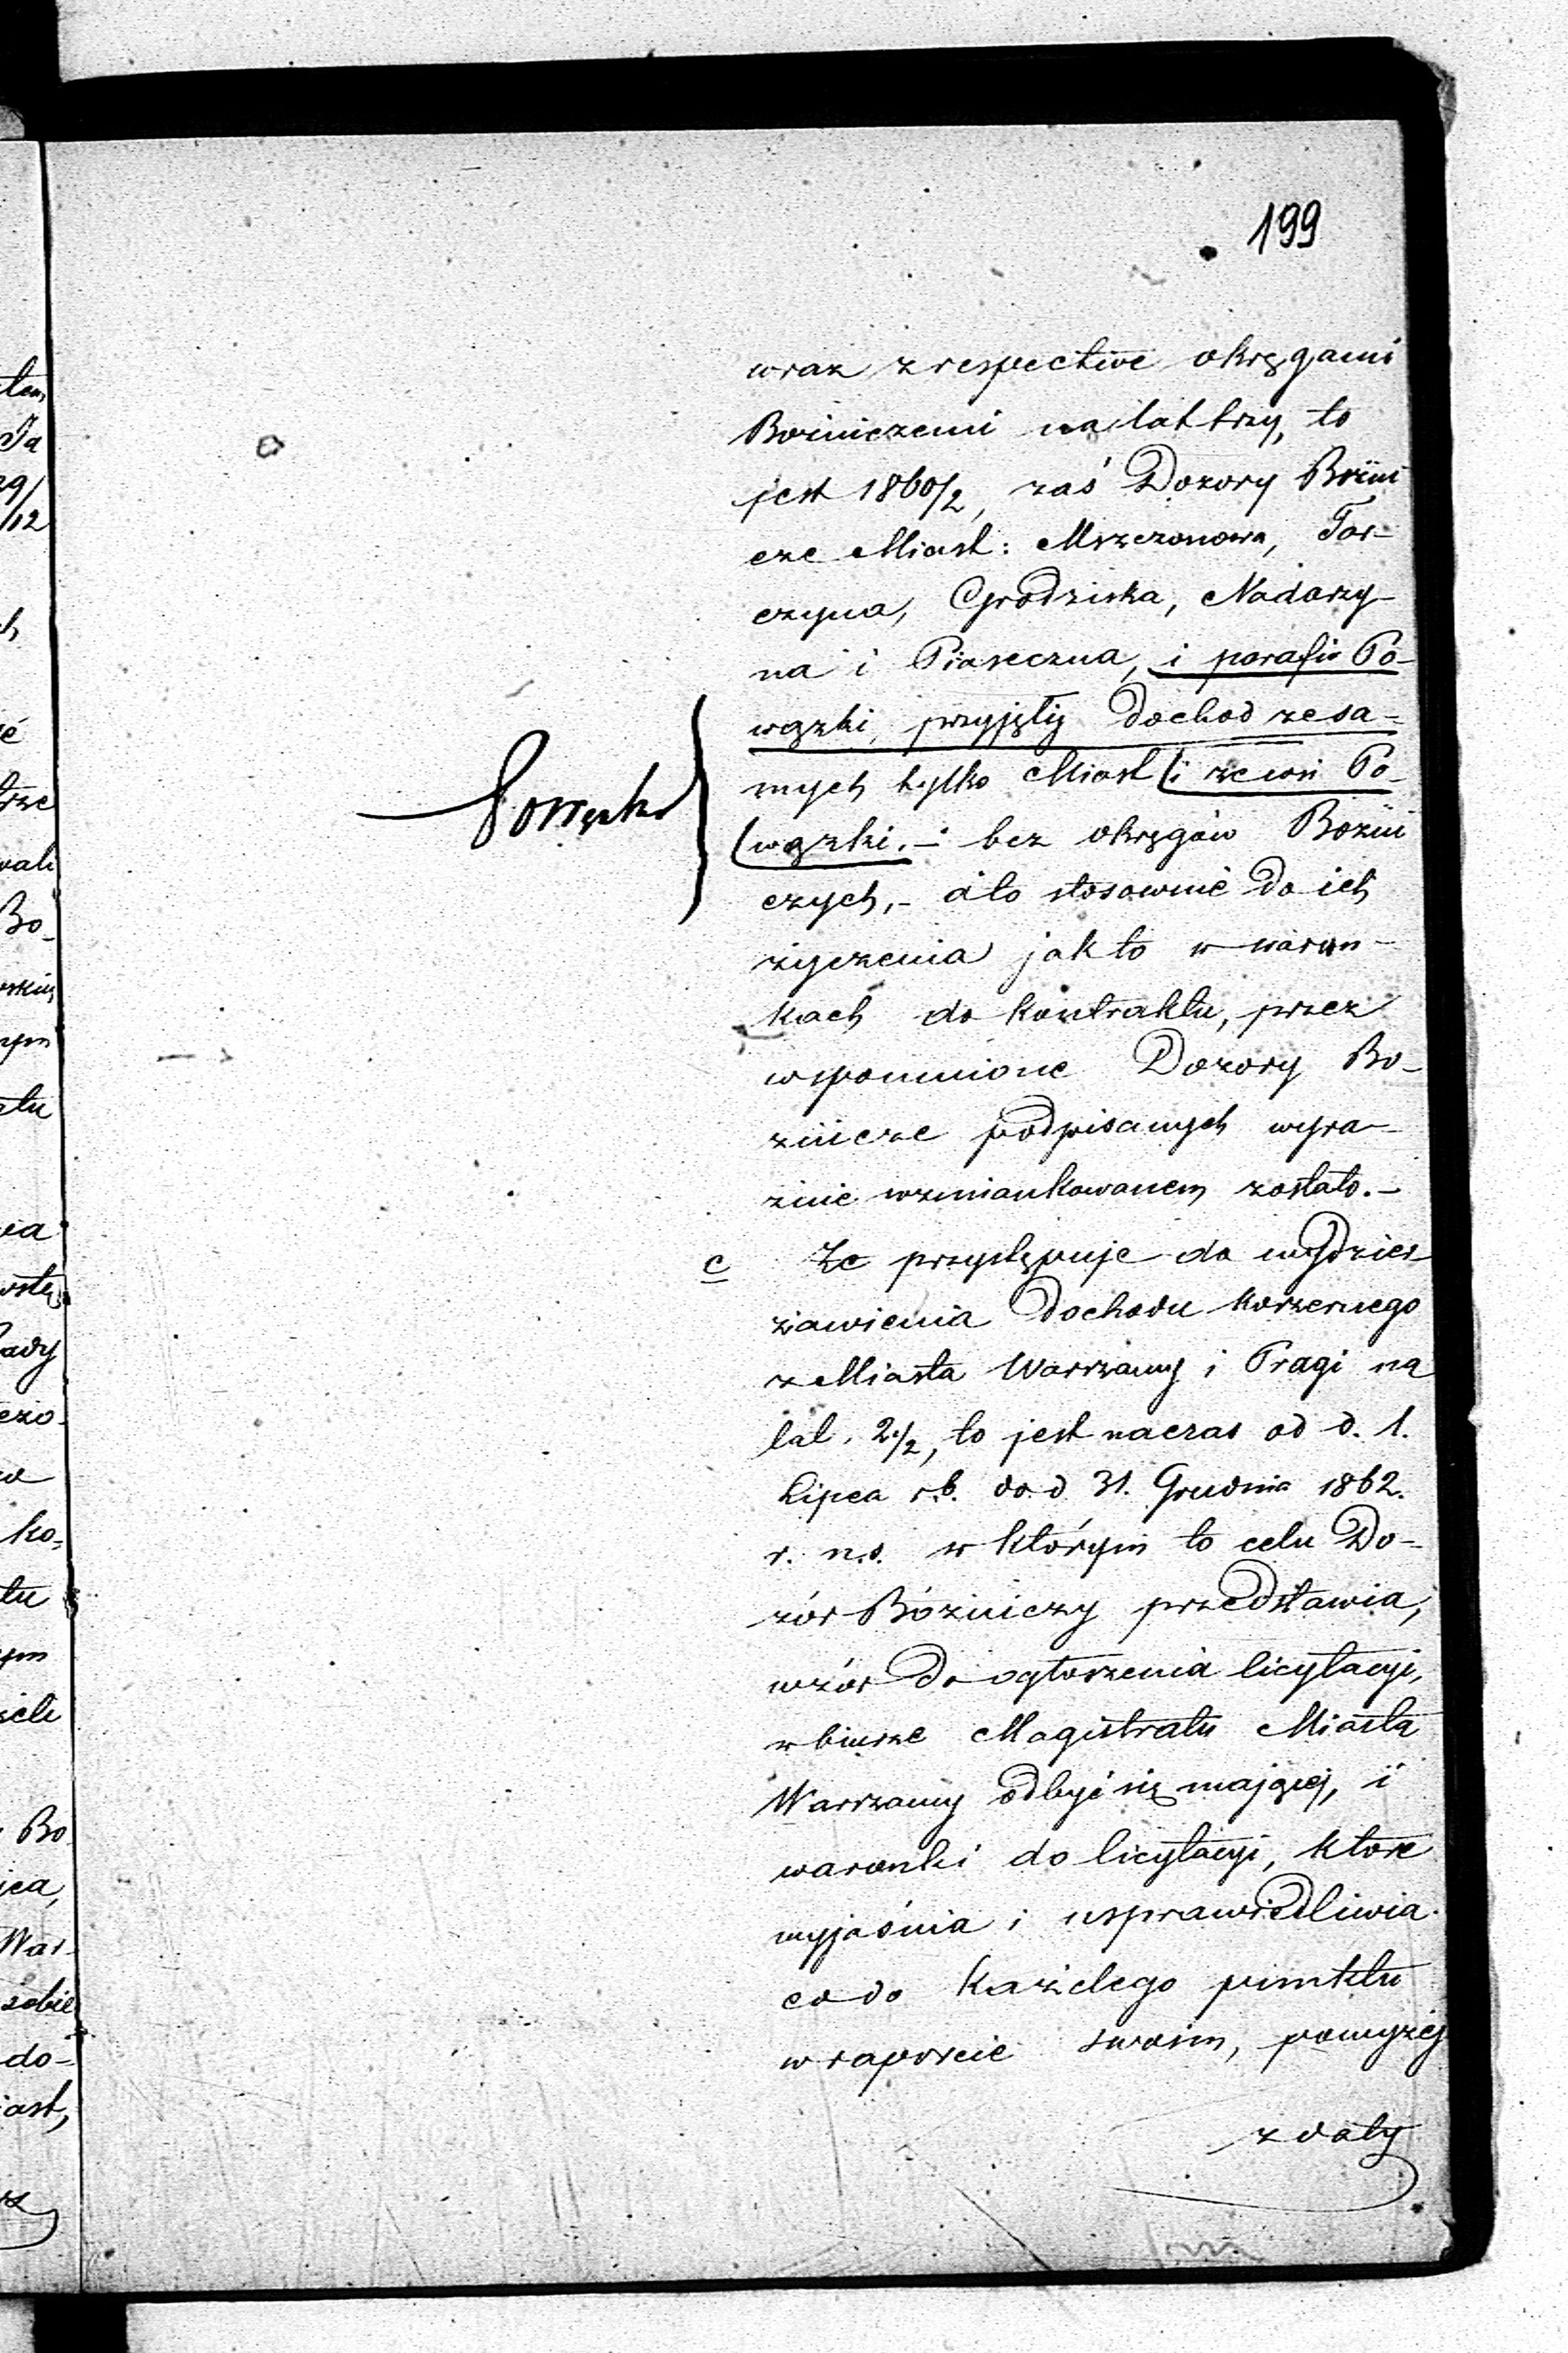 199
wraz z respective okręgami
Bożniczemi na lat trzy, to
jest 1860/2, zaś Dozory Bożni
cze Miast: Mszczonowa, Tar-
czyna, Grodziska, Nadarzy-
na i Piaseczna, i parafii Po-
wązki, przyjęły dochod ze sa-
mych tylko Miast i ze wsi Po-
wązki. - bez okręgów Bożni
czych, - a to stosownie do ich
Powązki
życzenia jak to w warun-
kach do kontraktu, przez
wspomnione Dozory Bo-
żnicze podpisanych wyra-
źnie wzmiankowanem zostało. -
c Że przystępuje do wydzier
żawienia dochodu koszernego
z Miasta Warszawy i Pragi na
lat 2 1/2, to jest na czas od d. 1.
Lipca r.b. do d 31. Grudnia 1862.
r. n.s. w którym to celu Do-
zór Bóżniczy przedstawia,
wzór do ogłoszenia licytacyi,
w biurze Magistratu Miasta
Warszawy odbyć się mającej, i
warunki do licytacyi, które
wyjaśnia i usprawiedliwia
co do każdego punktu
w raporcie swoim, powyżej
z daty